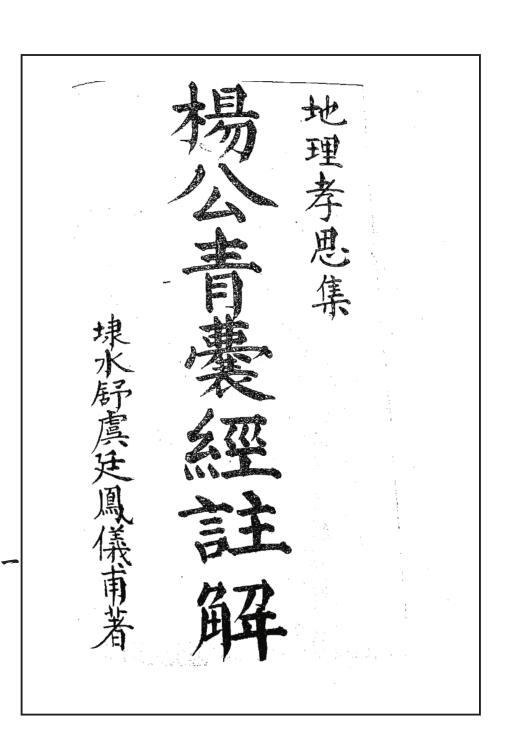 地理孝思集
楊公青囊經註解
埭水舒虞廷鳳儀甫著
一